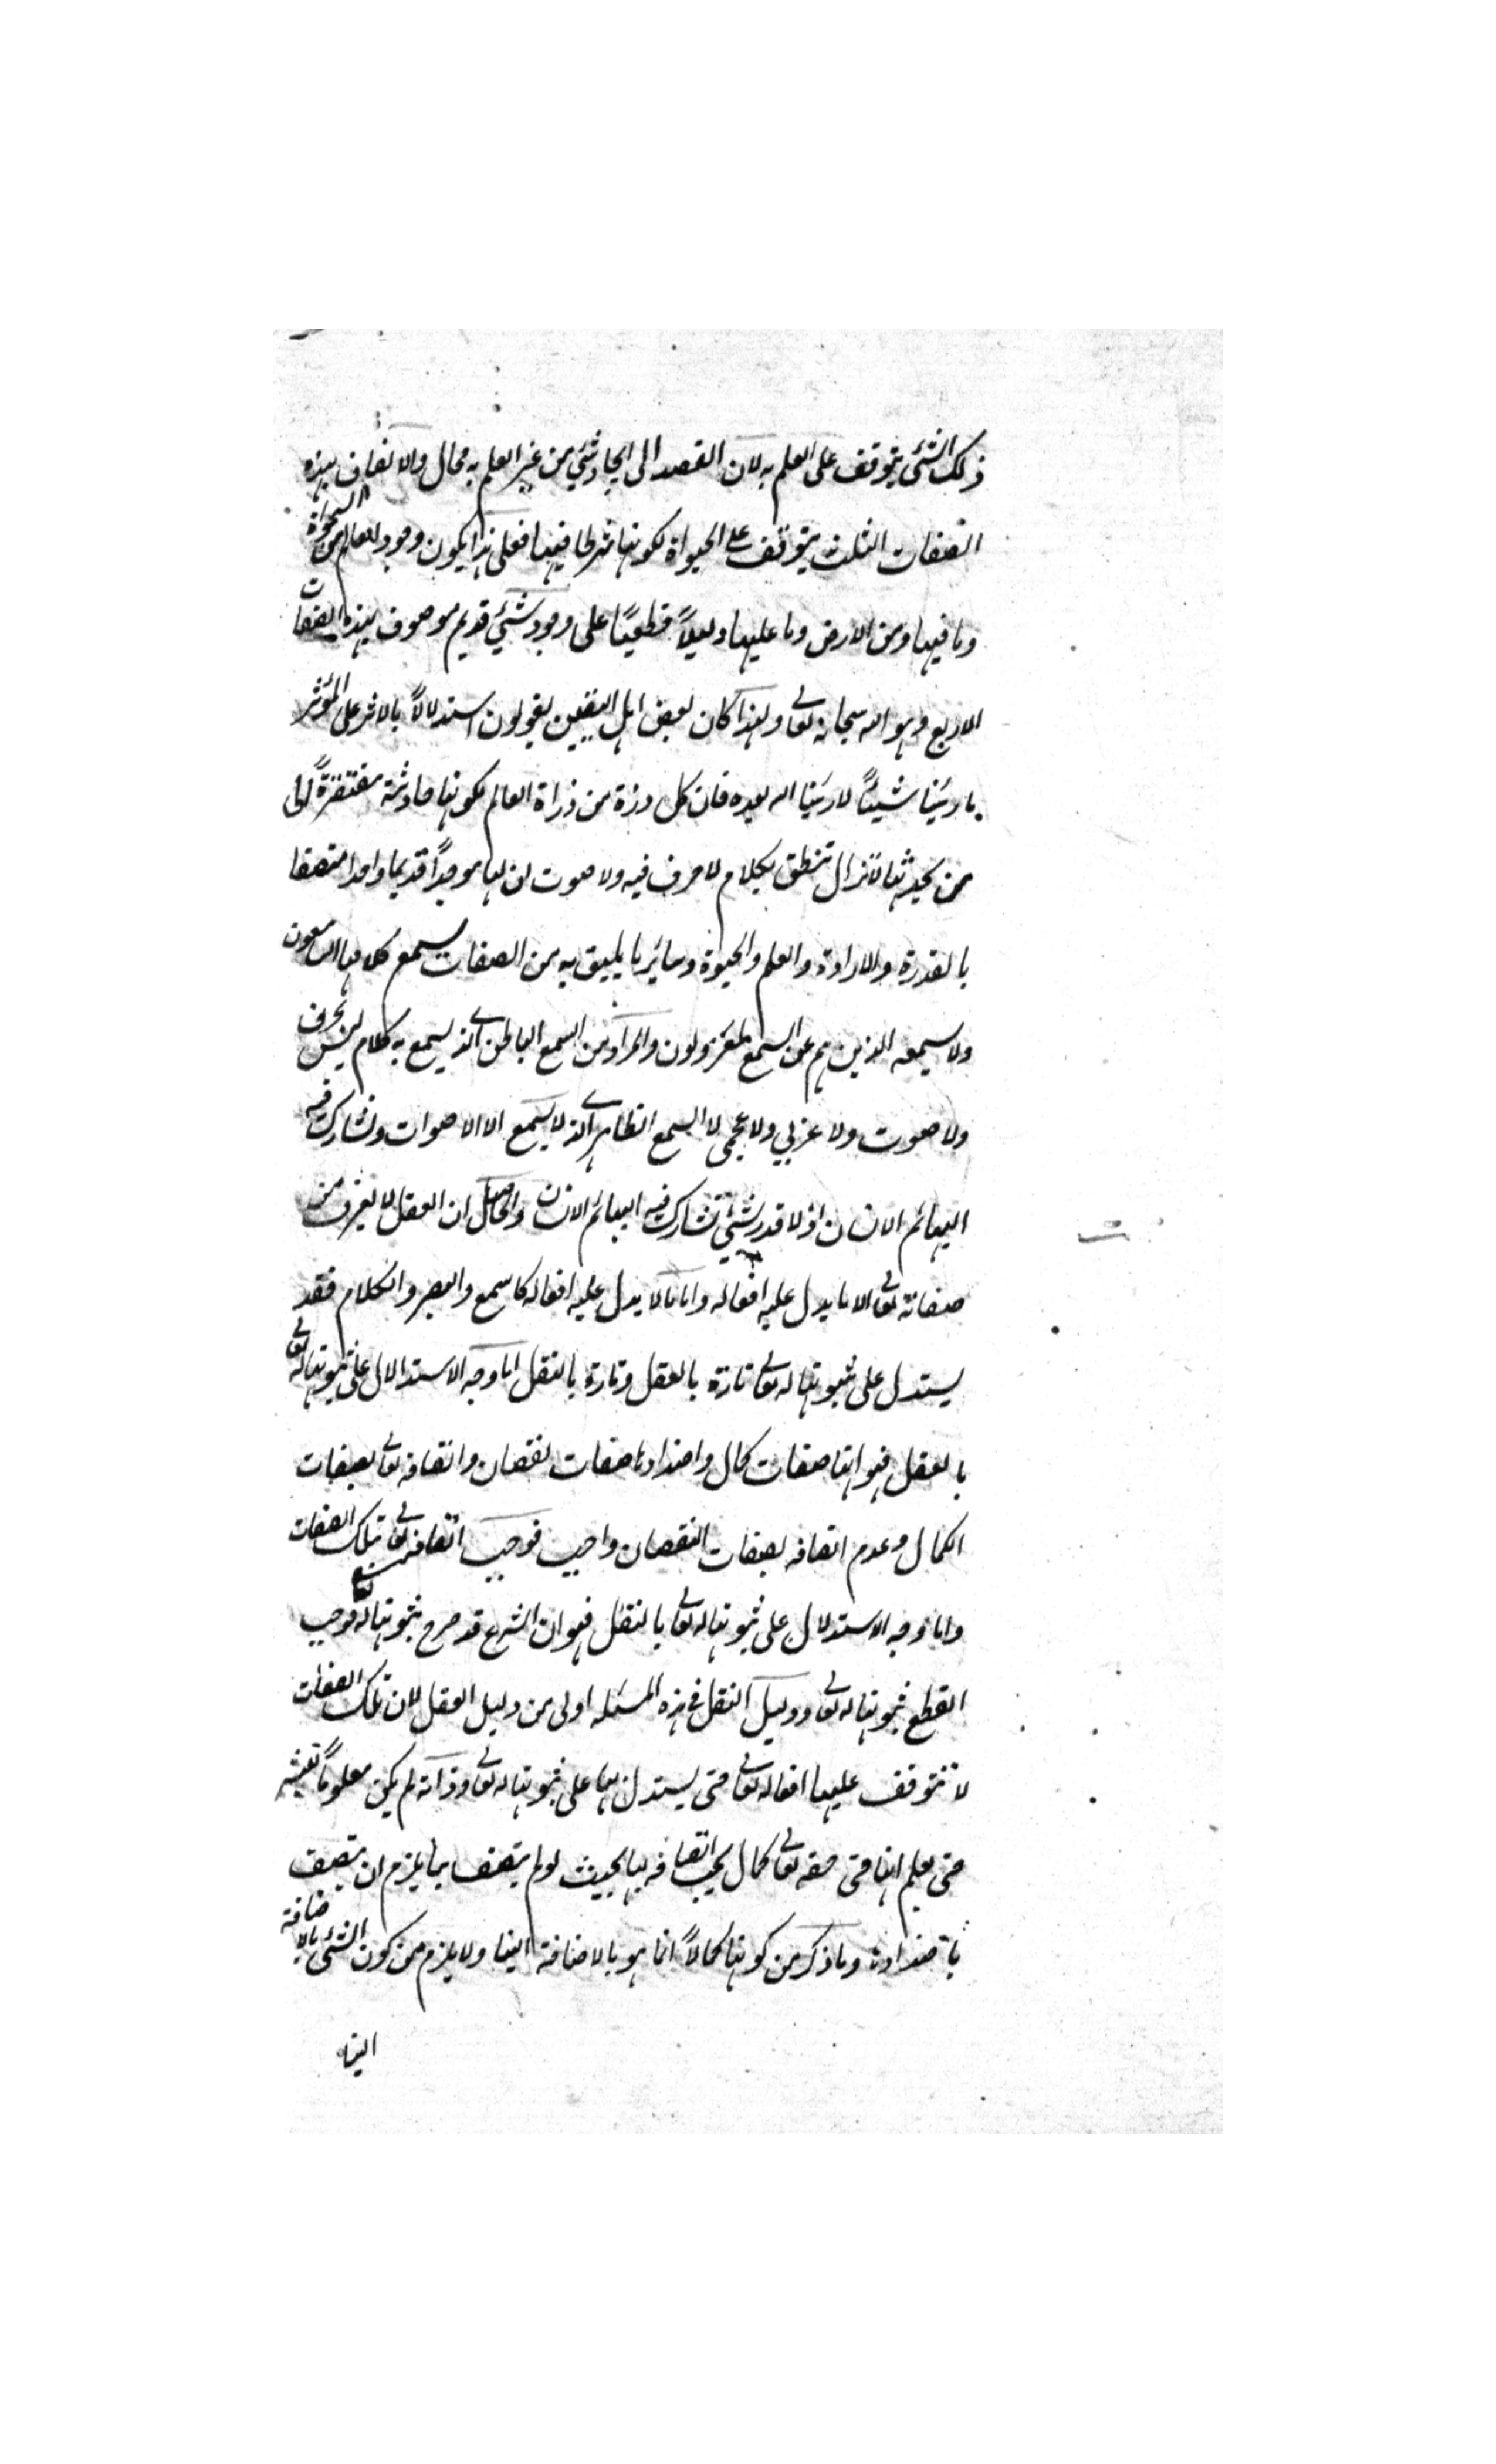 ذلك الشئ يتوقف على العلم به لان القصد الى ايجاد شئي من غير العلم به محال والاتصاف بهذه
الصفات الثلث يتوقف على الحيواة لكونها شرطا فيها فعلى هذا يكون وجود العالم من السموات
وما فيها ومن الارض وما عليها دليلاً قطعيًا على وجود شئي قديم موصوف بهذه الصفات
الاربع وهو الله سبحانه تعالى ولهذا كان بعض اهل اليقين يقولون استدلالاً بالاثر على المؤثر
ما رئينا شيئاً الا رئينا الله بعده فان كل ذرة من ذراة العالم لكونها حادثة مفتقرةً الى
من يحدثها لا تزال تنطق بكلام لا حرف فيه ولا صوت ان لها موجداً قديما واحدا متصفا
بالقدرة والارادة والعلم والحيوة وسائر ما يليق به من الصفات يسمع كلامها السامعون
ولا يسمعه الذين هم عن السمع لمعزولون والمراد من السمع الباطن الذي يسمع به كلام ليس بحرف
ولا صوت ولا عربي ولا عجمى لا السمع الظاهر الذي لا يسمع الا الاصوات وتشارك فيه
البهائم الانسان اذ لا قدر لشئي تشارك فيه البهائم الانسان والحاصل ان العقل لا يعرف من
صفاته تعالى الا ما يدل عليه افعاله واما ما لا يدل عليه افعاله كالسمع والبصر والكلام فقد
يستدل على ثبوتها له تعالى تارة بالعقل وتارة بالنقل اما وجه الاستدلال على ثبوتها له تعالى
بالعقل فهو انها صفات كمال واضدادها صفات نقصان واتصافه تعالى بصفات
الكمال وعدم اتصافه بصفات النقصان واجب فوجب اتصافه تعالى بتلك الصفات
واما وجه الاستدلال على ثبوتها له تعالى بالنقل فهو ان الشرع قد صرح بثبوتها له تعالى فوجب
القطع بثبوتها له تعالى ودليل النقل في هذه المسئله اولى من دليل العقل لان تلك الصفات
لا تتوقف عليها افعاله تعالى حتى يستدل بها على ثبوتها له تعالى وذاته لم يكن معلوماً لبشر
حتى يعلم انها في حقه تعالى كمال يجب اتصافه بها بحيث لو لم يتصف بها يلزم ان يتصف
باضدادها وما ذكر من كونها كمالاً انما هو بالاضافة الينا ولا يلزم من كون الشئى بالاضافة
الينا